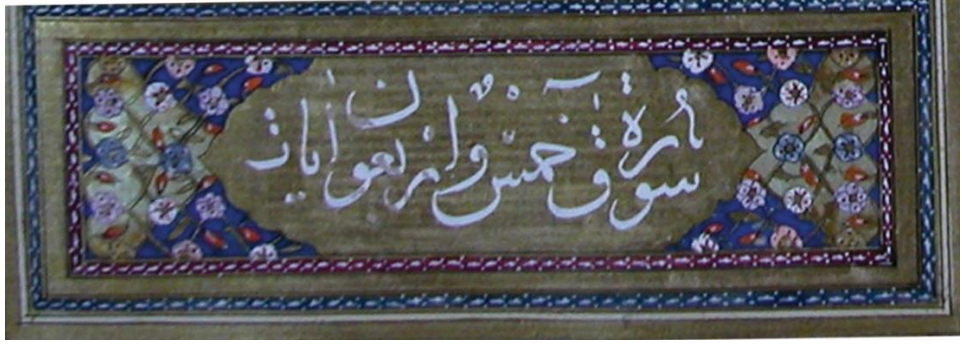 سورة ق خمس واربعون ايات